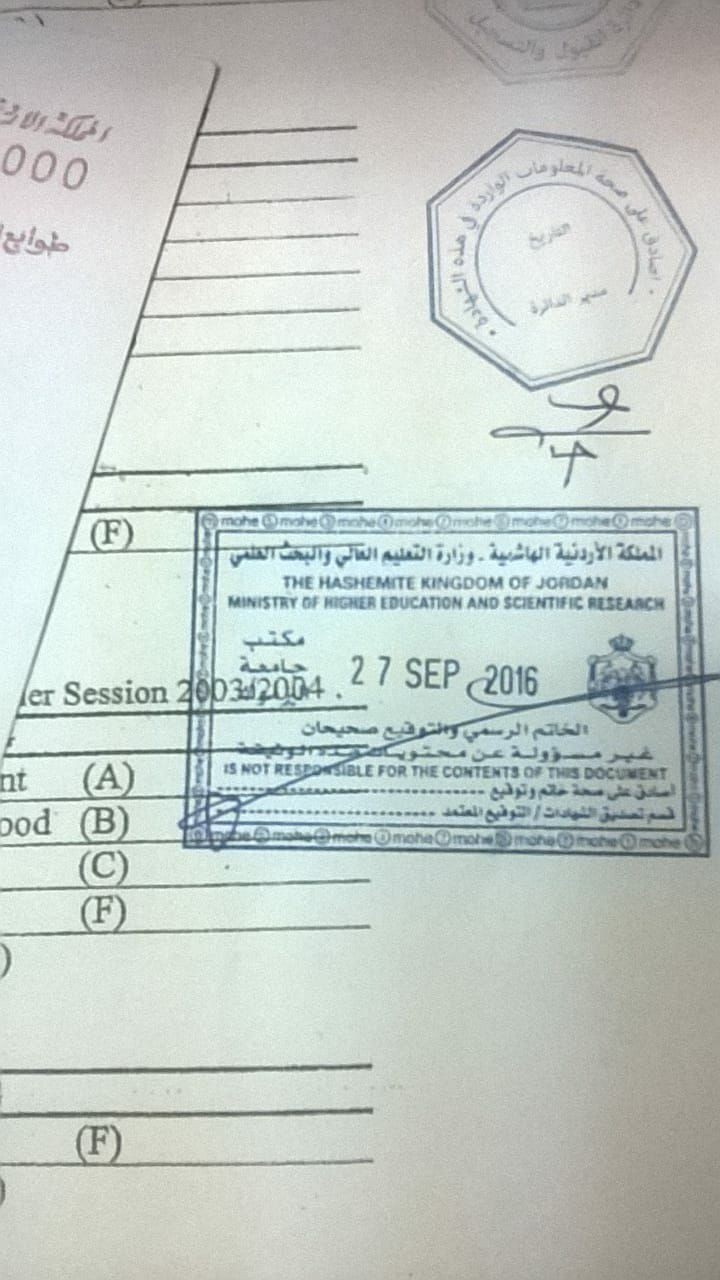 دائرة القبول والتسجيل
المملكة
000
طوابع
اصادق على صحة المعلومات الواردة في هذه الشهادة
التاريخ
مدير الدائرة
(F)
mohe mohe mohe mohe mohe mohe mohe mohe
المملكة الأردنية الهاشمية - وزارة التعليم العالي والبحث العلمي
THE HASHEMITE KINGDOM OF JORDAN
MINISTRY OF HIGHER EDUCATION AND SCIENTIFIC RESEARCH
مكتب
جامعة
27 SEP 2016
er Session 2003/2004 .
الخاتم الرسمي والتوقيع صحيحان
غير مسؤولة عن محتويات هذه الوثيقة
IS NOT RESPONSIBLE FOR THE CONTENTS OF THIS DOCUMENT
nt (A)
اصادق على صحة خاتم وتوقيع
ood (B)
قسم تصديق الشهادات / التوقيع المعتمد
mohe mohe mohe mohe mohe mohe mohe mohe
(C)
(F)
)
(F)
)